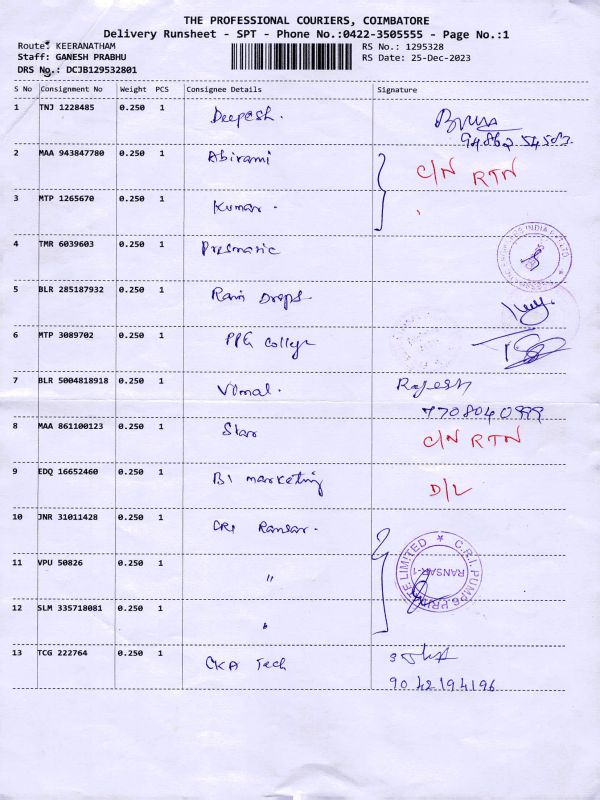 THE PROFESSIONAL COURIERS, COIMBATORE
Delivery Runsheet - SPT - Phone No.:0422-3505555 - Page No.:1
Route: KEERANATHAM RS No.: 1295328
Staff: GANESH PRABHU RS Date: 25-Dec-2023
DRS No.: DCJB129532801
S No Consignment No Weight PCS Consignee Details Signature
1 TNJ 1228485 0.250 1 Deepash.
2 MAA 943847780 0.250 1 Abirami C/N RTN
3 MTP 1265670 0.250 1 Kumar.
4 TMR 6039603 0.250 1 Prismatic
5 BLR 285187932 0.250 1 Rain Drops
6 MTP 3089702 0.250 1 PPG College
7 BLR 5004818918 0.250 1 Vimal. Rajesh
7708040999
8 MAA 861100123 0.250 1 Star C/N RTN
9 EDQ 16652460 0.250 1 BI marketing D/L
10 JNR 31011428 0.250 1 CRI Ransar.
11 VPU 50826 0.250 1 "
C.R.I. PUMPS PRIVATE LIMITED
RANSAR-1
12 SLM 335718081 0.250 1 "
13 TCG 222764 0.250 1 CKA Tech
9042194196